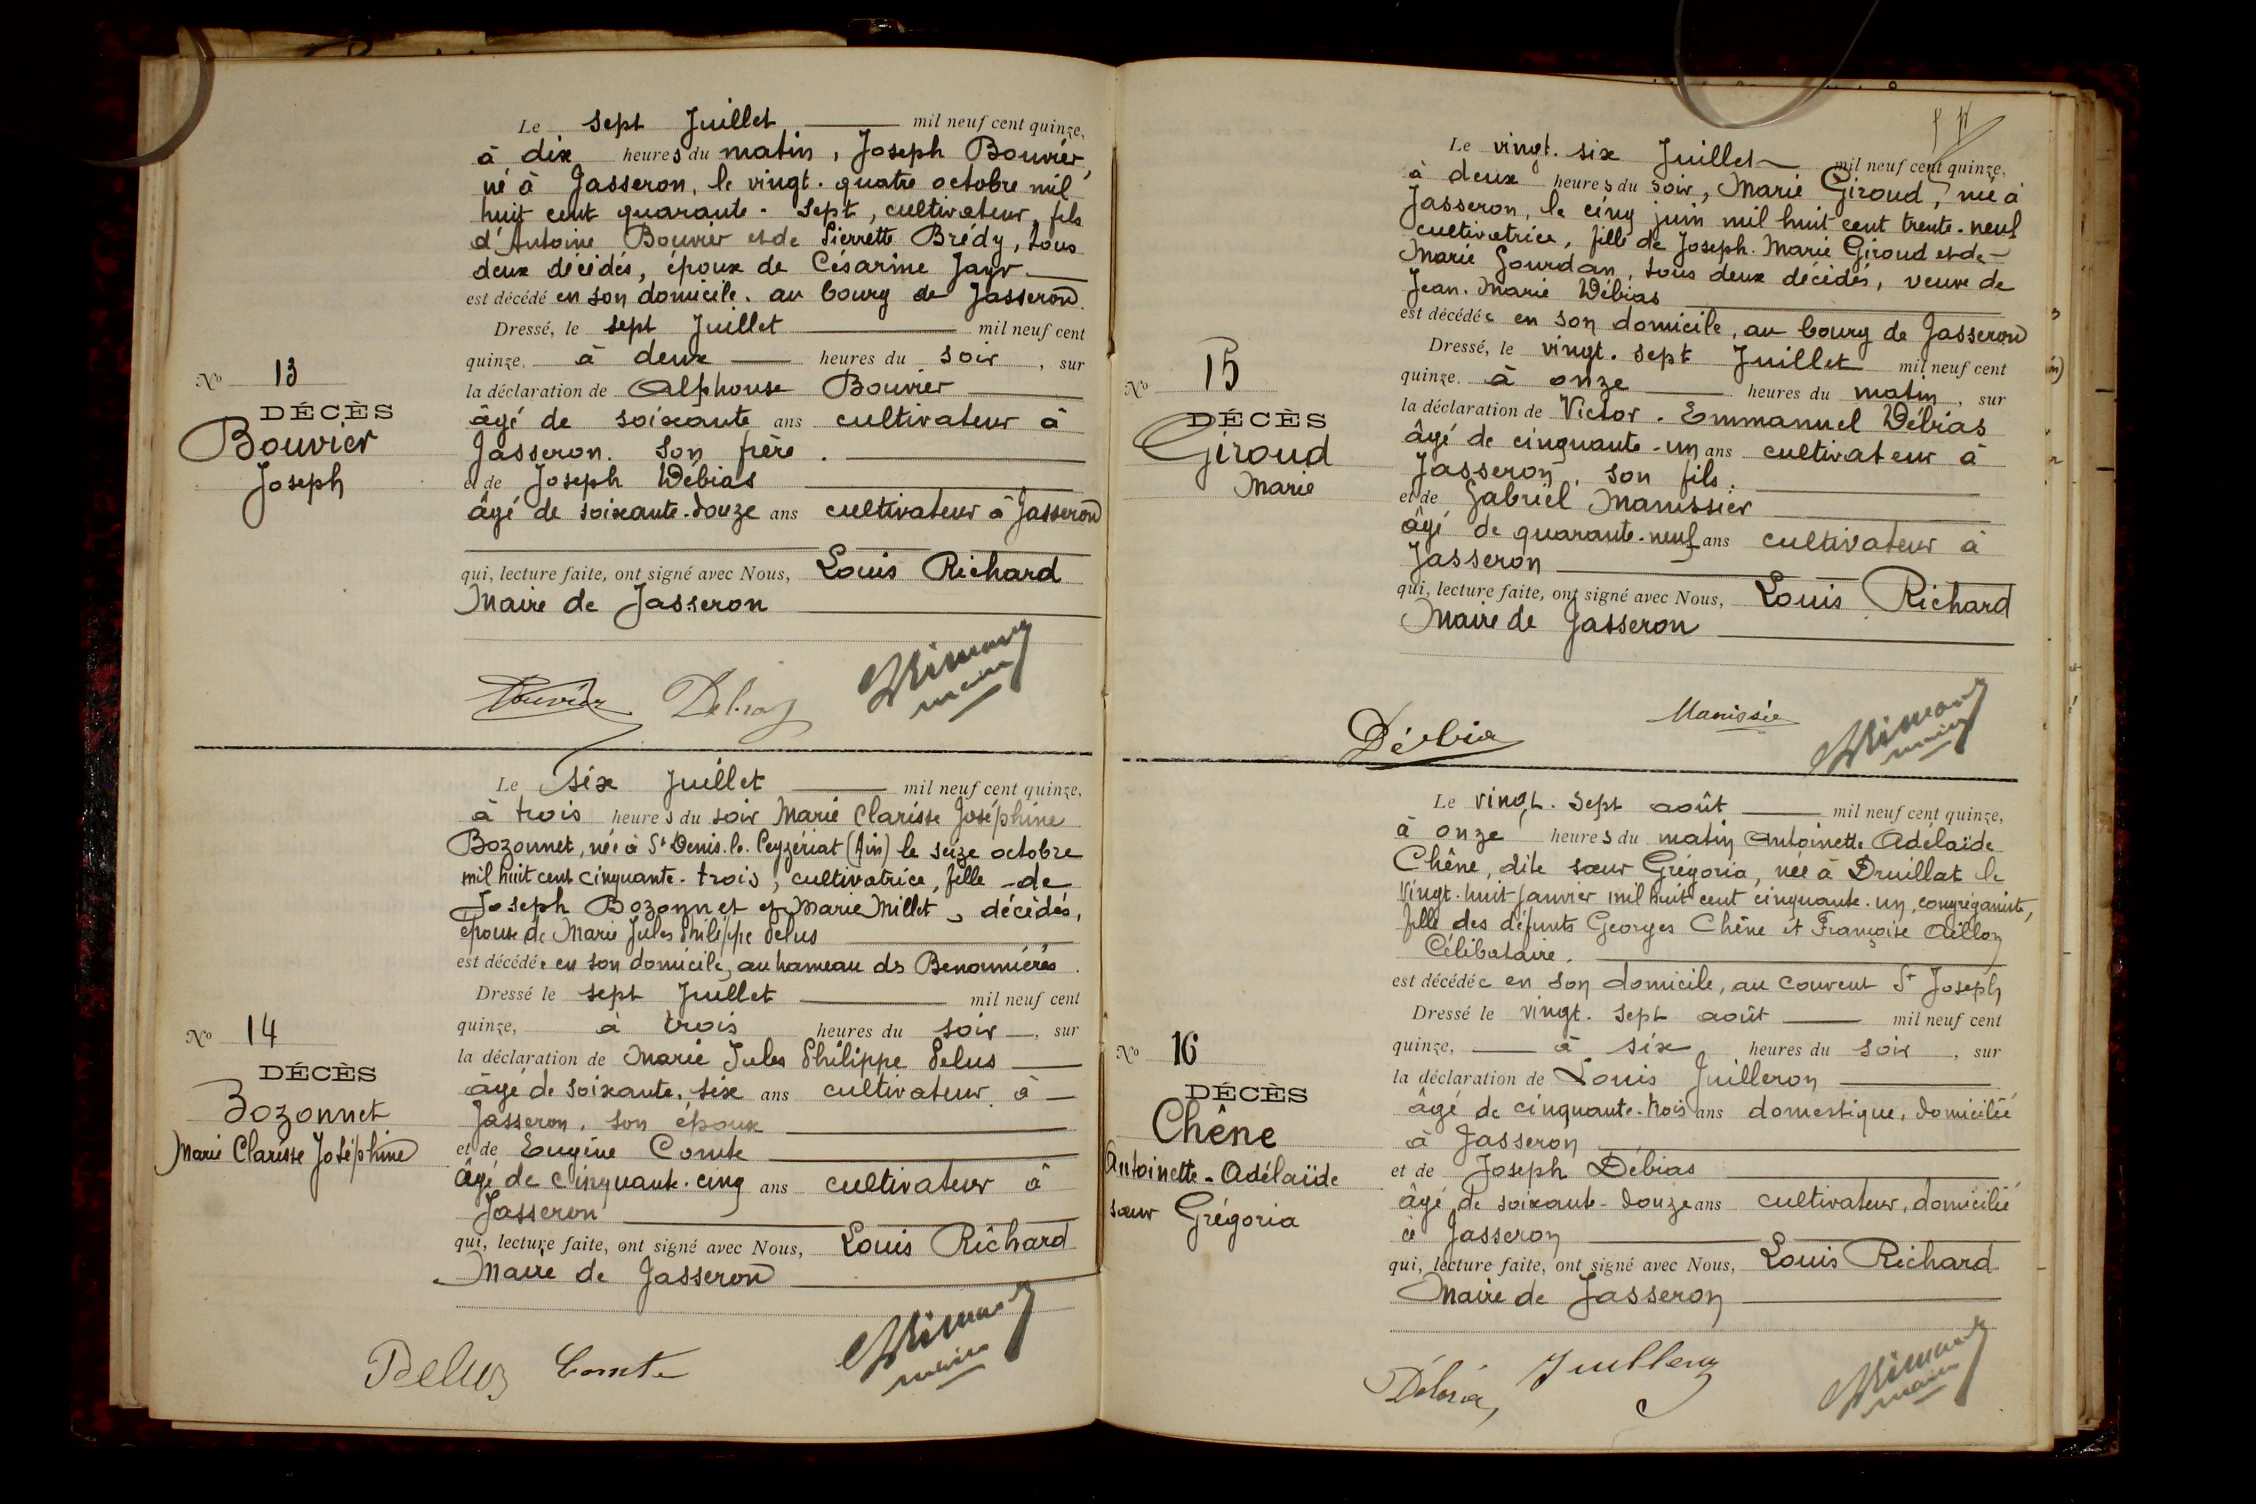 Le sept Juillet mil neuf cent quinze,
à dix heures du matin, Joseph Bouvier,
né à Jasseron, le vingt. quatre octobre mil
huit cent quarante. sept, cultivateur, fils
d'Antoine Bouvier et de Pierrette Brédy, tous
deux décédés, époux de Césarine Jayr
est décédé en son domicile. au bourg de Jasseron.
Dressé, le sept Juillet mil neuf cent
quinze, à deux heures du soir, sur
la déclaration de Alphonse Bouvier
âgé de soixante ans cultivateur à
Jasseron. son frère.
et de Joseph Débias
âgé de soixante-douze ans cultivateur à Jasseron
qui, lecture faite, ont signé avec Nous, Louis Richard
Maire de Jasseron
No 13
DÉCÈS
Bouvier
Joseph
Bouvier
maire
Le six Juillet mil neuf cent quinze,
à trois heures du soir Marie Clarisse Joséphine
Bozonnet, née à St Denis. le. Ceyzériat (Ain) le seize octobre
mil huit cent cinquante. trois, cultivatrice, fille de
Joseph Bozonnet et Marie Millet, décédés,
épouse de Marie Jules Philippe Pelus
est décédée en son domicile, au hameau ds Benonnières.
Dressé le sept Juillet mil neuf cent
quinze, à trois heures du soir, sur
la déclaration de Marie Jules Philippe Pelus
âgé de soixante. six ans cultivateur à
Jasseron, son époux
et de Eugène Comte
âgé de cinquante. cinq ans cultivateur à
Jasseron
qui, lecture faite, ont signé avec Nous, Louis Richard
Maire de Jasseron
No 14
DÉCÈS
Bozonnet
Marie Clarisse Joséphine
Comte
maire
Le vingt. six Juillet mil neuf cent quinze,
à deux heures du soir, Marie Giroud, née à
Jasseron, le cinq juin mil huit cent trente. neuf
cultivatrice, fille de Joseph. Marie Giroud et de
Marie Gourdan, tous deux décédés, veuve de
Jean. Marie Débias
est décédée en son domicile, au bourg de Jasseron
Dressé, le vingt. sept Juillet mil neuf cent
quinze. à onze heures du matin, sur
la déclaration de Victor. Emmanuel Débias
âgé de cinquante-un ans cultivateur à
Jasseron, son fils.
et de Gabriel Manissier
âgé de quarante-neuf ans cultivateur à
Jasseron
qui, lecture faite, ont signé avec Nous, Louis Richard
Maire de Jasseron
No 15
DÉCÈS
Giroud
Marie
Débia
maire
Le vingt. sept août mil neuf cent quinze,
à onze heures du matin Antoinette Adélaïde
Chêne, dite sœur Grégoria, née à Druillat le
vingt. huit Janvier mil huit cent cinquante. un, congréganiste,
fille des défunts Georges Chêne et Françoise
Célibataire.
est décédée en son domicile, au couvent St Joseph
Dressé le vingt. sept août mil neuf cent
quinze, à six heures du soir, sur
la déclaration de Louis Juilleron
âgé de cinquante-trois ans domestique, domicilié
à Jasseron
et de Joseph Débias
âgé de soixante-douze ans cultivateur, domicilié
à Jasseron
qui, lecture faite, ont signé avec Nous, Louis Richard
Maire de Jasseron
No 16
DÉCÈS
Chêne
Antoinette-Adélaïde
sœur Grégoria
maire